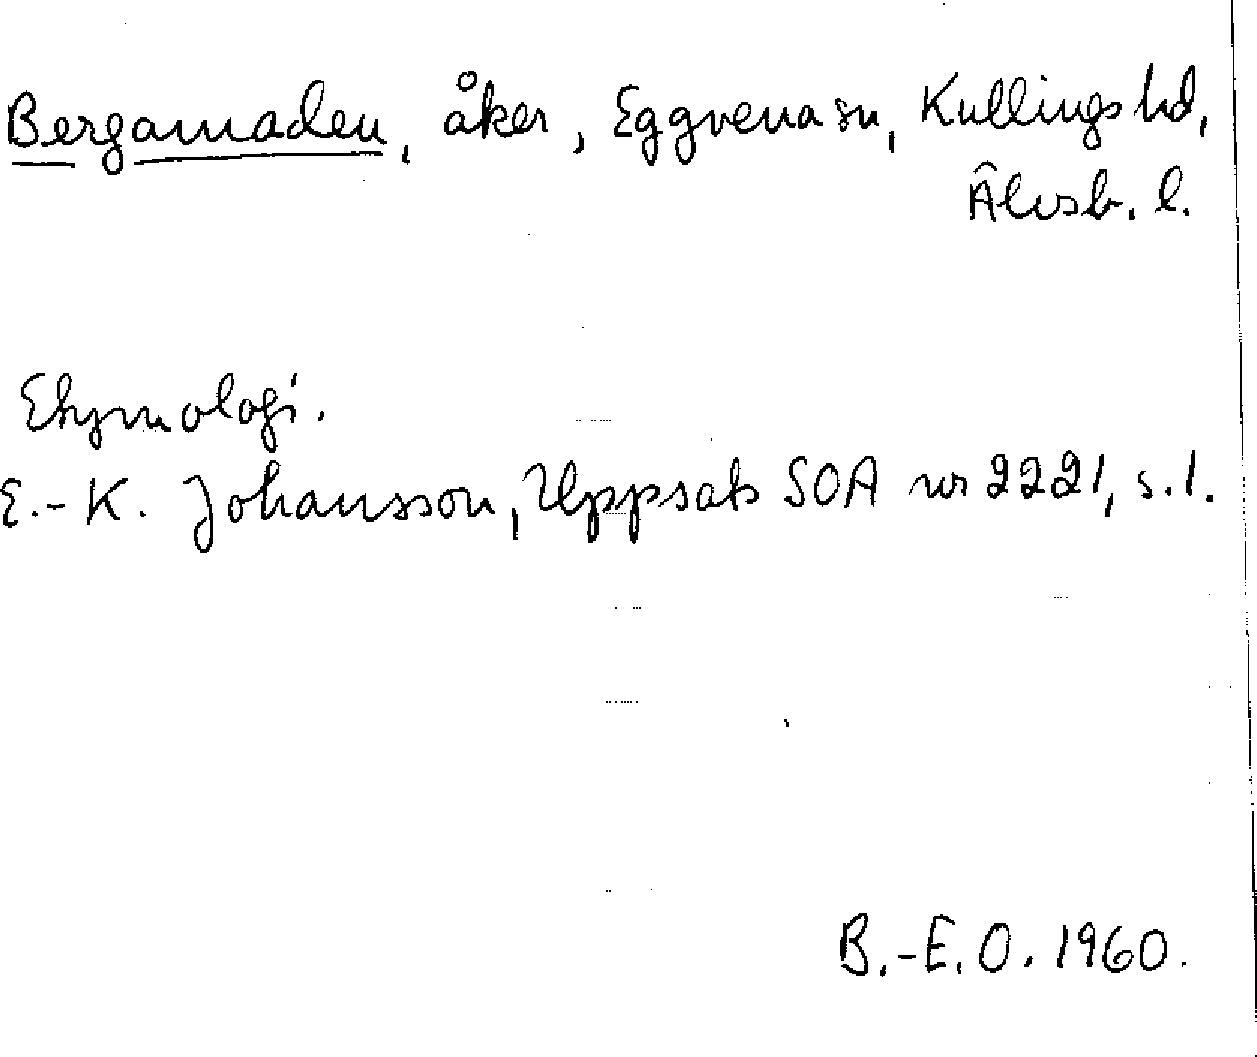 Bergamaden, åker, Eggvena sn, Kullings hd,
Älvsb. l.
Etymologi.
E.-K. Johansson, Uppsats SOA nr 2221, s.1.
B.-E.O. 1960.